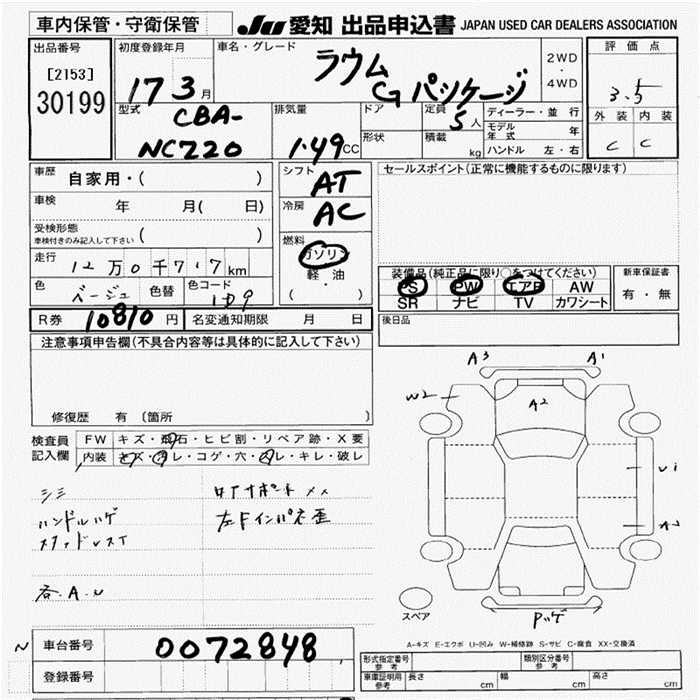 車内保管・守衛保管
JU 愛知 出品申込書 JAPAN USED CAR DEALERS ASSOCIATION
出品番号
[2153]
30199
初度登録年月
17 3月
車名・グレード
ラウム
Gパッケージ
2WD
・
4WD
評価点
3.5
外装 内装
C C
型式
CBA-
NCZ20
排気量
1.49CC
ドア
形状
定員
5人
積載
kg
ディーラー・並行
モデル年式 年
ハンドル 左・右
車歴 自家用・( )
車検 年 月( 日)
受検形態
車検付きのみ記入して下さい ( )
走行 12万0千717km
色 ベージュ 色替 色コード
シフト AT
冷房 AC
燃料
ガソリン
軽・油
( ・ )
セールスポイント(正常に機能するものに限ります)
装備品(純正品に限り○をつけてください)
PS PW エアB AW
SR ナビ TV カワシート
新車保証書
有・無
R券 10810 円 名変通知期限 月 日
後日品
注意事項申告欄(不具合内容等は具体的に記入して下さい)
修復歴 有 〔箇所
検査員
記入欄
FW キズ・飛石・ヒビ割・リペア跡・X要
内装 キズ・汚レ・コゲ・穴・スレ・キレ・破レ
シミ
ハンドルハゲ
各A.U
A3 A1
W2
A2
U1
スペア
A-キズ E-エクボ U-凹み W-補修跡 S-サビ C-腐食 XX-交換済
N
車台番号 0072848
登録番号
形式指定番号
参考
類別区分番号
参考
車庫証明用
参考
長さ cm 幅 cm 高さ cm